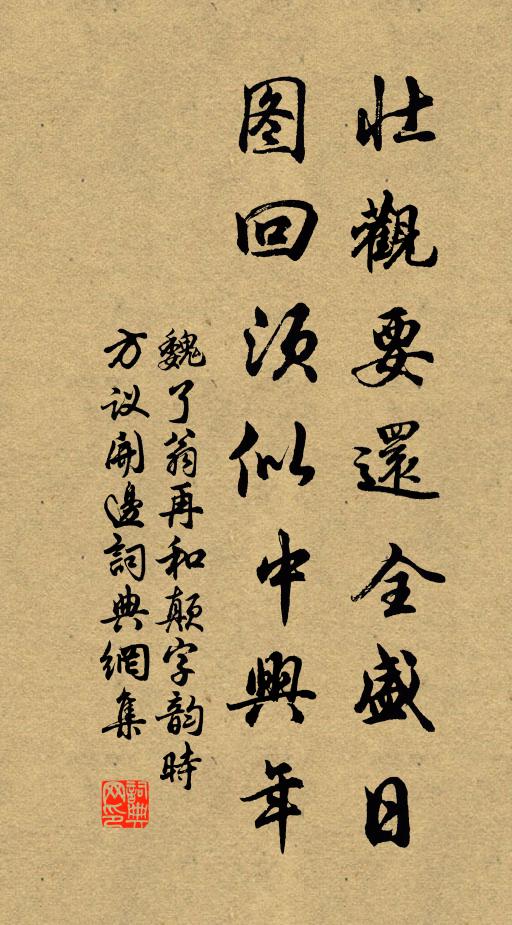 壮觀要還全盛日
图回须似中興年
魏了翁再和颠字韵時
方议開邊詞典網集
詞典网印